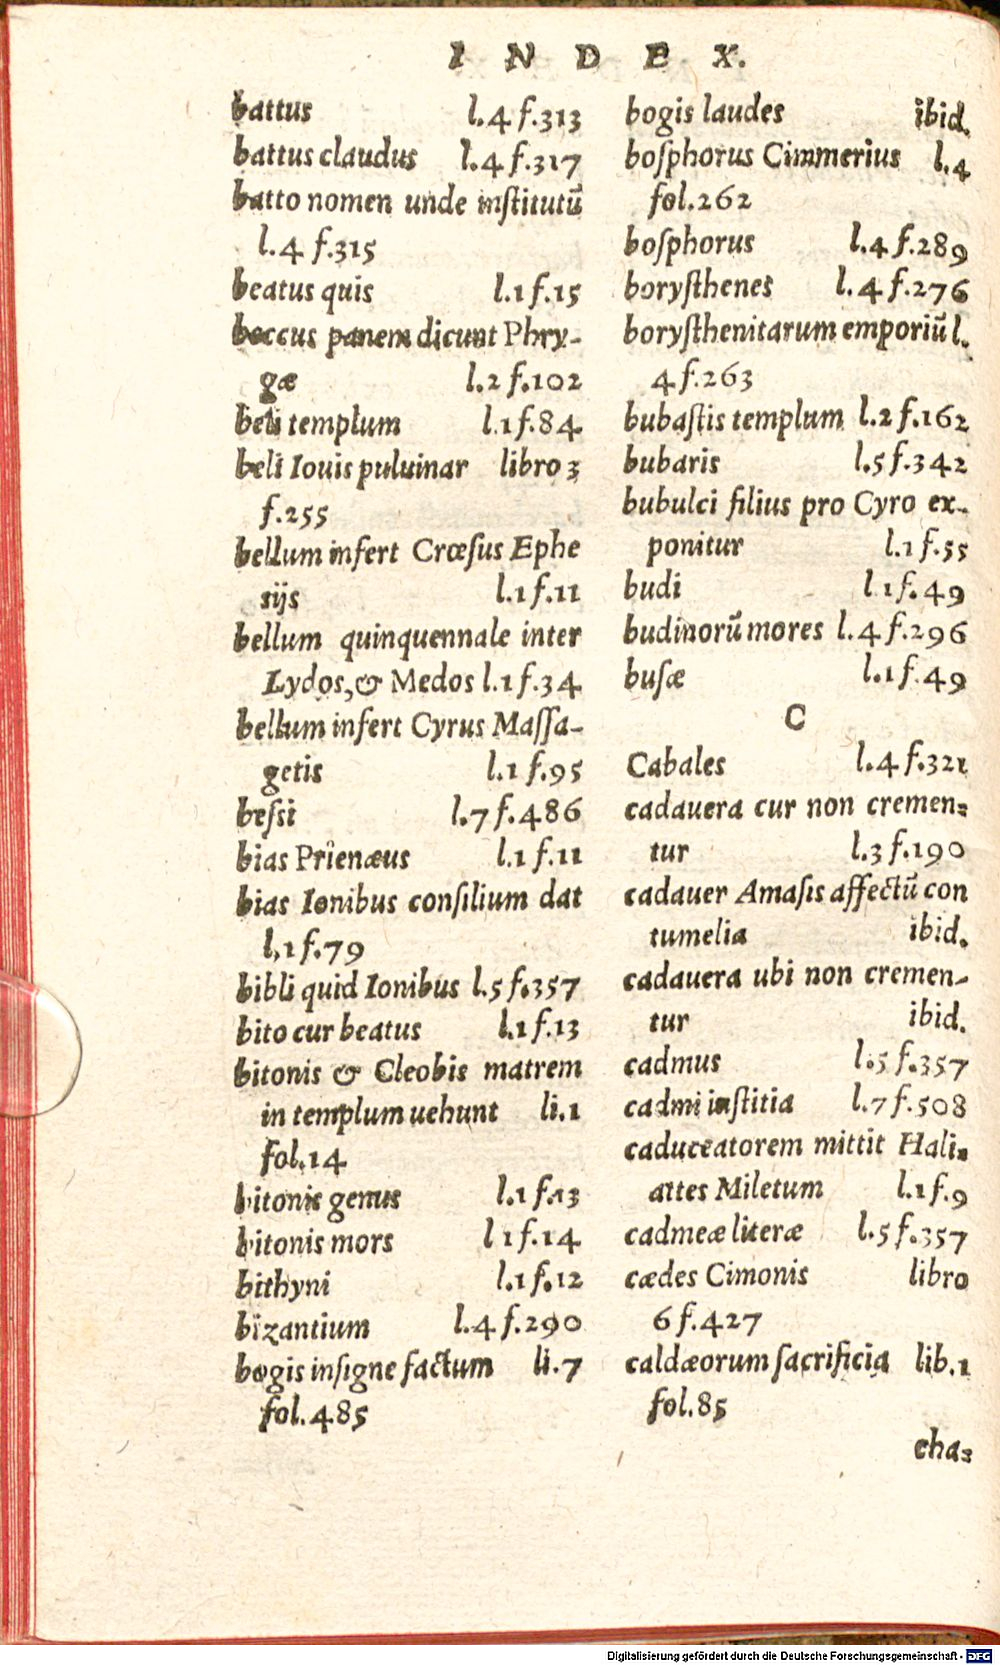 INDEX.
battus l.4 f.313
battus claudus l.4 f.317
batto nomen unde institutũ
l.4 f.315
beatus quis l.1 f.15
beccus panem dicunt Phry-
gæ l.2 f.102
beli templum l.1 f.84
beli Iouis puluinar libro 3
f.255
bellum infert Crœsus Ephe
sijs l.1 f.11
bellum quinquennale inter
Lydos, & Medos l.1 f.34
bellum infert Cyrus Massa-
getis l.1 f.95
bessi l.7 f.486
bias Prienæus l.1 f.11
bias Ionibus consilium dat
l.1 f.79
bibli quid Ionibus l.5 f.357
bito cur beatus l.1 f.13
bitonis & Cleobis matrem
in templum uehunt li.1
fol.14
bitonis genus l.1 f.13
bitonis mors l 1 f.14
bithyni l.1 f.12
bizantium l.4 f.290
bogis insigne factum li.7
fol.485
bogis laudes ibid.
bosphorus Cimmerius l.4
fol.262
bosphorus l.4 f.289
borysthenes l.4 f.276
borysthenitarum emporiũ l.
4 f.263
bubastis templum l.2 f.162
bubaris l.5 f.342
bubulci filius pro Cyro ex-
ponitur l.1 f.55
budi l 1 f.49
budinorũ mores l.4 f.296
busæ l.1 f.49
C
Cabales l.4 f.321
cadauera cur non cremen=
tur l.3 f.190
cadauer Amasis affectũ con
tumelia ibid.
cadauera ubi non cremen-
tur ibid.
cadmus l.5 f.357
cadmi iustitia l.7 f.508
caduceatorem mittit Hali=
attes Miletum l.1 f.9
cadmeæ literæ l.5 f.357
cædes Cimonis libro
6 f.427
caldæorum sacrificia lib.1
fol.85
cha=
Digitalisierung gefördert durch die Deutsche Forschungsgemeinschaft - DFG